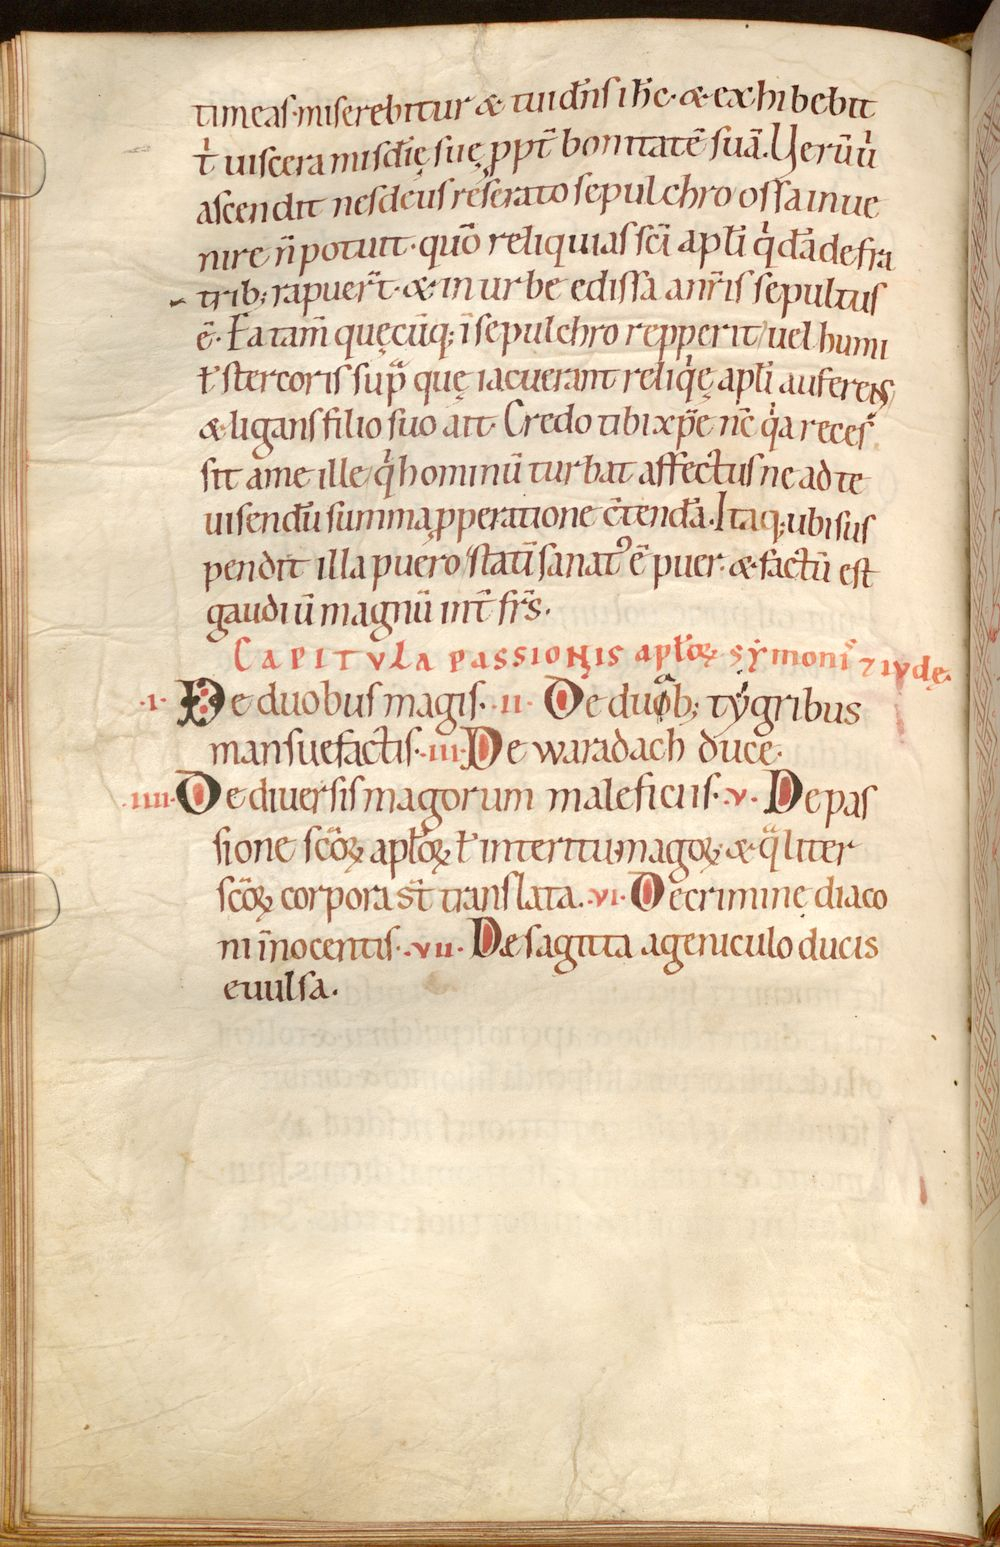 timeas· miserebitur & tui dn̄s ih̄c· & exhibebit
t̉ uiscera misd̄ię suę ꝓpt̄ bonitatē suā. Uerū ů
ascendit nesdeus reserato sepulchro ossa inue
nire n̄ potuit· quō reliquias sc̄i apl̄i qͥdā de fra
trib; rapuer̄t· & in urbe edissa anr̄is sepultus
ē· Eatam̄ quęcūq; ī sepulchro repperit uel humi
ł stercoris sup̄ quę iacuerant reliqͥę apl̄i auferens
& ligans filio suo ait· Credo tibi xp̄e nc̄ qͥa reces
sit a me ille qͥ hominū turbat affectus ne ad te
uisendū summa ꝓperatione c̄tendā. Itaq; ubi sus
pendit illa puero statī sanatꝰ ē puer· & factū est
gaudiū magnū int̄ fr̄s·
CAPITVLA PASSIONIS apl̄oꝝ symonis ⁊ iudę·
·I· De duobus magis· II· De duab; tygribus
mansuefactis· III· De waradach duce·
·IIII· De diuersis magorum maleficiis· ·V· De pas
sione sc̄oꝝ apl̄oꝝ ł interitu magoꝝ· & qͣliter
sc̄oꝝ corpora st̄ translata. ·VI· De crimine diaco
ni īnocentis· ·VII· De sagitta a geniculo ducis
euulsa·